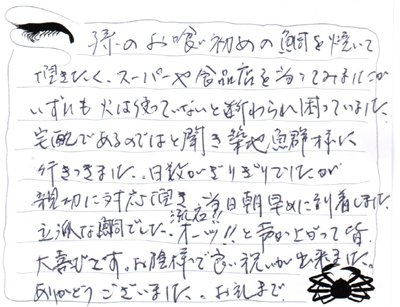 孫のお喰い初めの鯛を焼いて
頂きたく、スーパーや食品店を当ってみましたが
いずれも火は使っていないと断わられ困っていました。
宅配であるのではと聞き築地魚群様に
行きつきました。日数がぎりぎりでしたが
親切に対応頂き、当日朝早めに到着しました。
立派な鯛でした。流石!! オーッ!!と声が上がって皆
大喜びです。お陰様で良い祝いが出来ました。
ありがとうございました。お礼まで